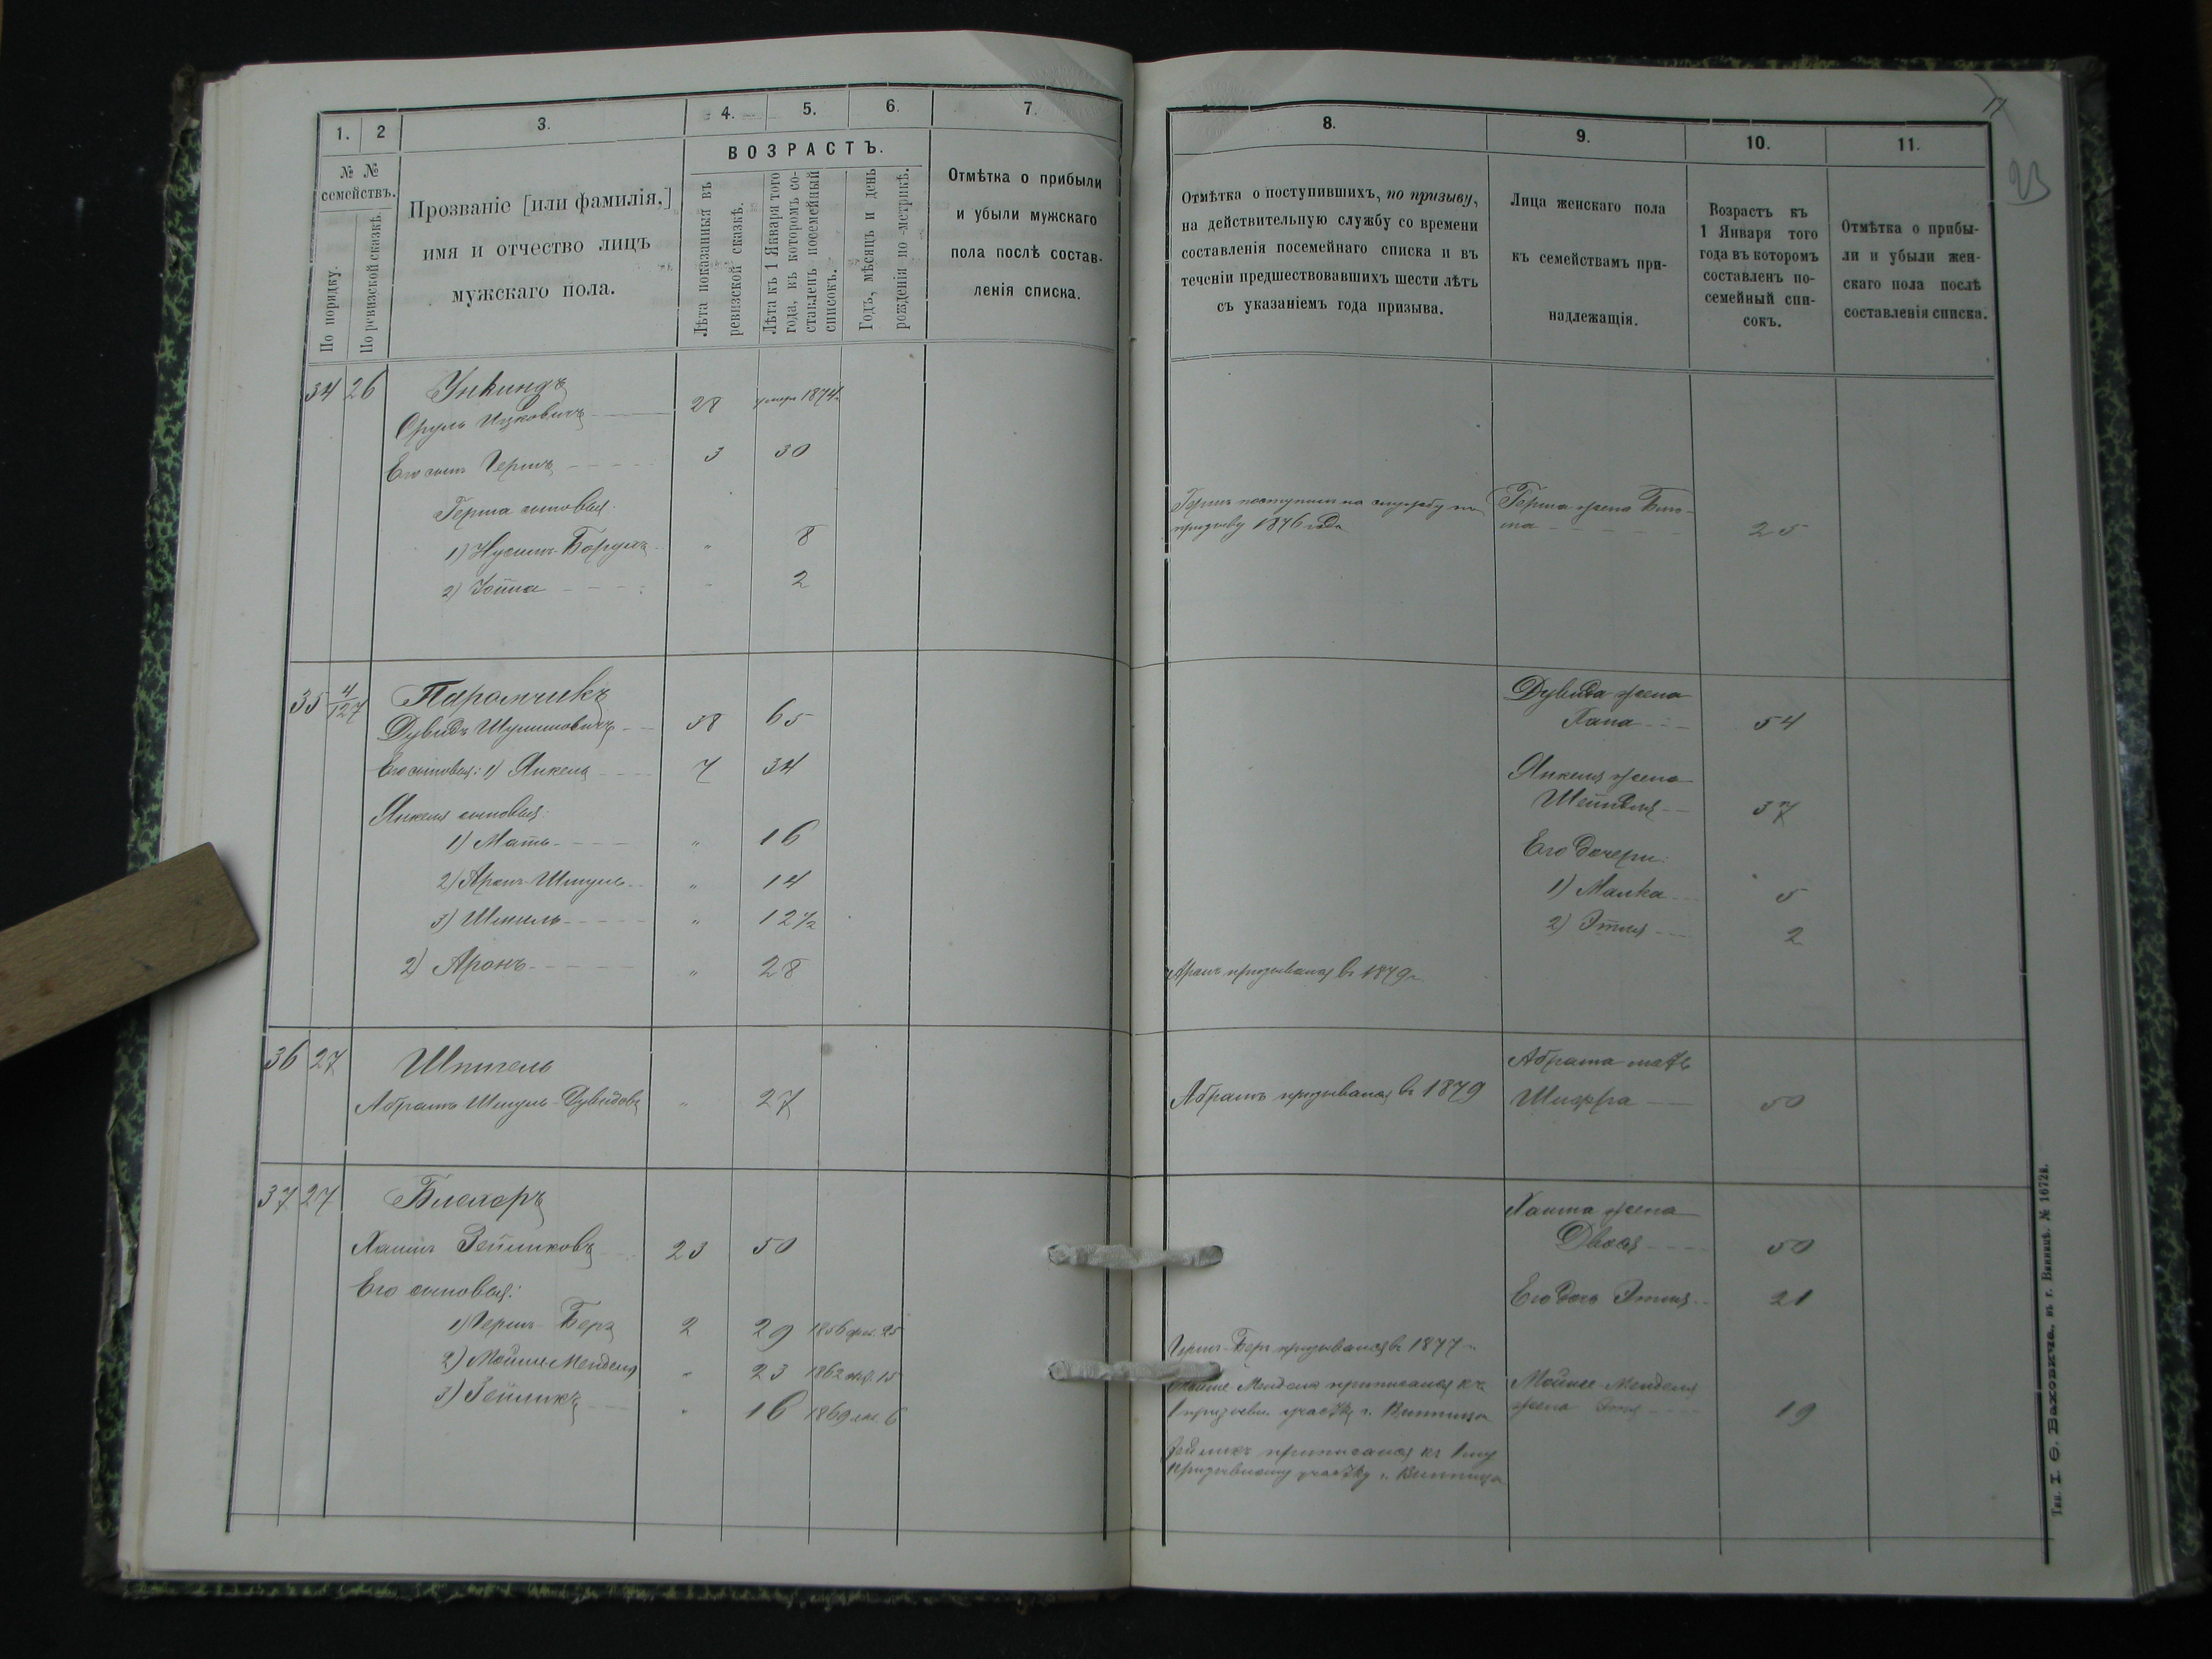 1. 2 3. 4. 5. 6. 7.
№ №
семействъ.
По порядку.
По ревизской сказкѣ.
Прозваніе [или фамилія,]
имя и отчество лицъ
мужскаго пола.
ВОЗРАСТЪ.
Лѣта показанныя въ
ревизской сказкѣ.
Лѣта къ 1 Января того
года, въ которомъ со-
ставленъ посемейный
списокъ.
Годъ, мѣсяцъ и день
рожденія по метрикѣ.
Отмѣтка о прибыли
и убыли мужскаго
пола послѣ состав-
ленія списка.
34 26 Уникиндъ
Сруль Ицковичъ 28 умеръ 1874г.
Его сынъ Гершъ 3 30
Герша сыновья:
1) Нусинъ-Борухъ " 8
2) Іойна " 2
35 4/127 Паромчикъ
Дувидъ Шулимовичъ 38 65
Его сыновья: 1) Янкель 7 34
Янкеля сыновья:
1) Мать " 16
2) Аронъ-Шмуль " 14
3) Шмиль " 12 1/2
2) Аронъ " 28
36 27 Шпигель
Абрамъ Шмуль-Дувидовъ " 27
37 27 Блехеръ
Хаимъ Зейликовъ 23 50
Его сыновья:
1) Гершъ-Беръ 2 29 1856 фев. 25
2) Мойше Мендель " 23 1862 15
3) Зейликъ " 16 1869 6
8. 9. 10. 11.
23
Отмѣтка о поступившихъ, по призыву,
на дѣйствительную службу со времени
составленія посемейнаго списка и въ
теченіи предшествовавшихъ шести лѣтъ
съ указаніемъ года призыва.
Лица женскаго пола
къ семействамъ при-
надлежащія.
Возрастъ къ
1 Января того
года въ которомъ
составленъ по-
семейный спи-
сокъ.
Отмѣтка о прибы-
ли и убыли жен-
скаго пола послѣ
составленія списка.
Гершъ поступилъ на службу по Герша жена
призыву 1876 года 25
Дувида жена
Хана 54
Янкеля жена
Шейндля 37
Его дочери:
1) Малка 5
2) Этля 2
Аронъ призывался въ 1879 г.
Абрама мать
Абрамъ призывался въ 1879 Шифра 50
Хаима жена
Двойя 50
Его дочь Этля 21
Гершъ-Беръ призывался въ 1877 г.
Мойше Мендель приписался къ Мойше-Менделя
1 призывн. участку г. Винница жена 19
Зейликъ приписался къ 1му
призывному участку г. Винница
Тип. І. Ѳ. Баховича, въ г. Винницѣ. № 1672в.